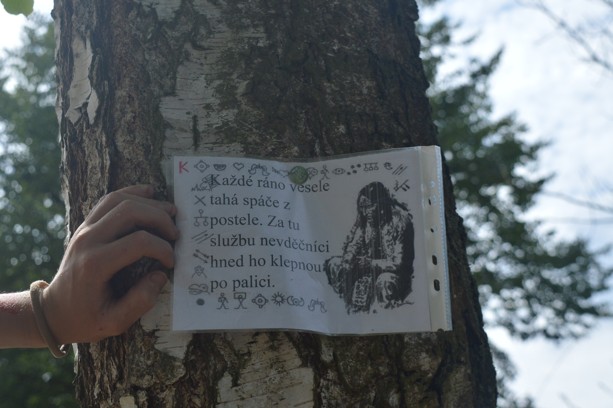 K
Každé ráno vesele
tahá spáče z
postele. Za tu
službu nevděčníci
hned ho klepnou
po palici.